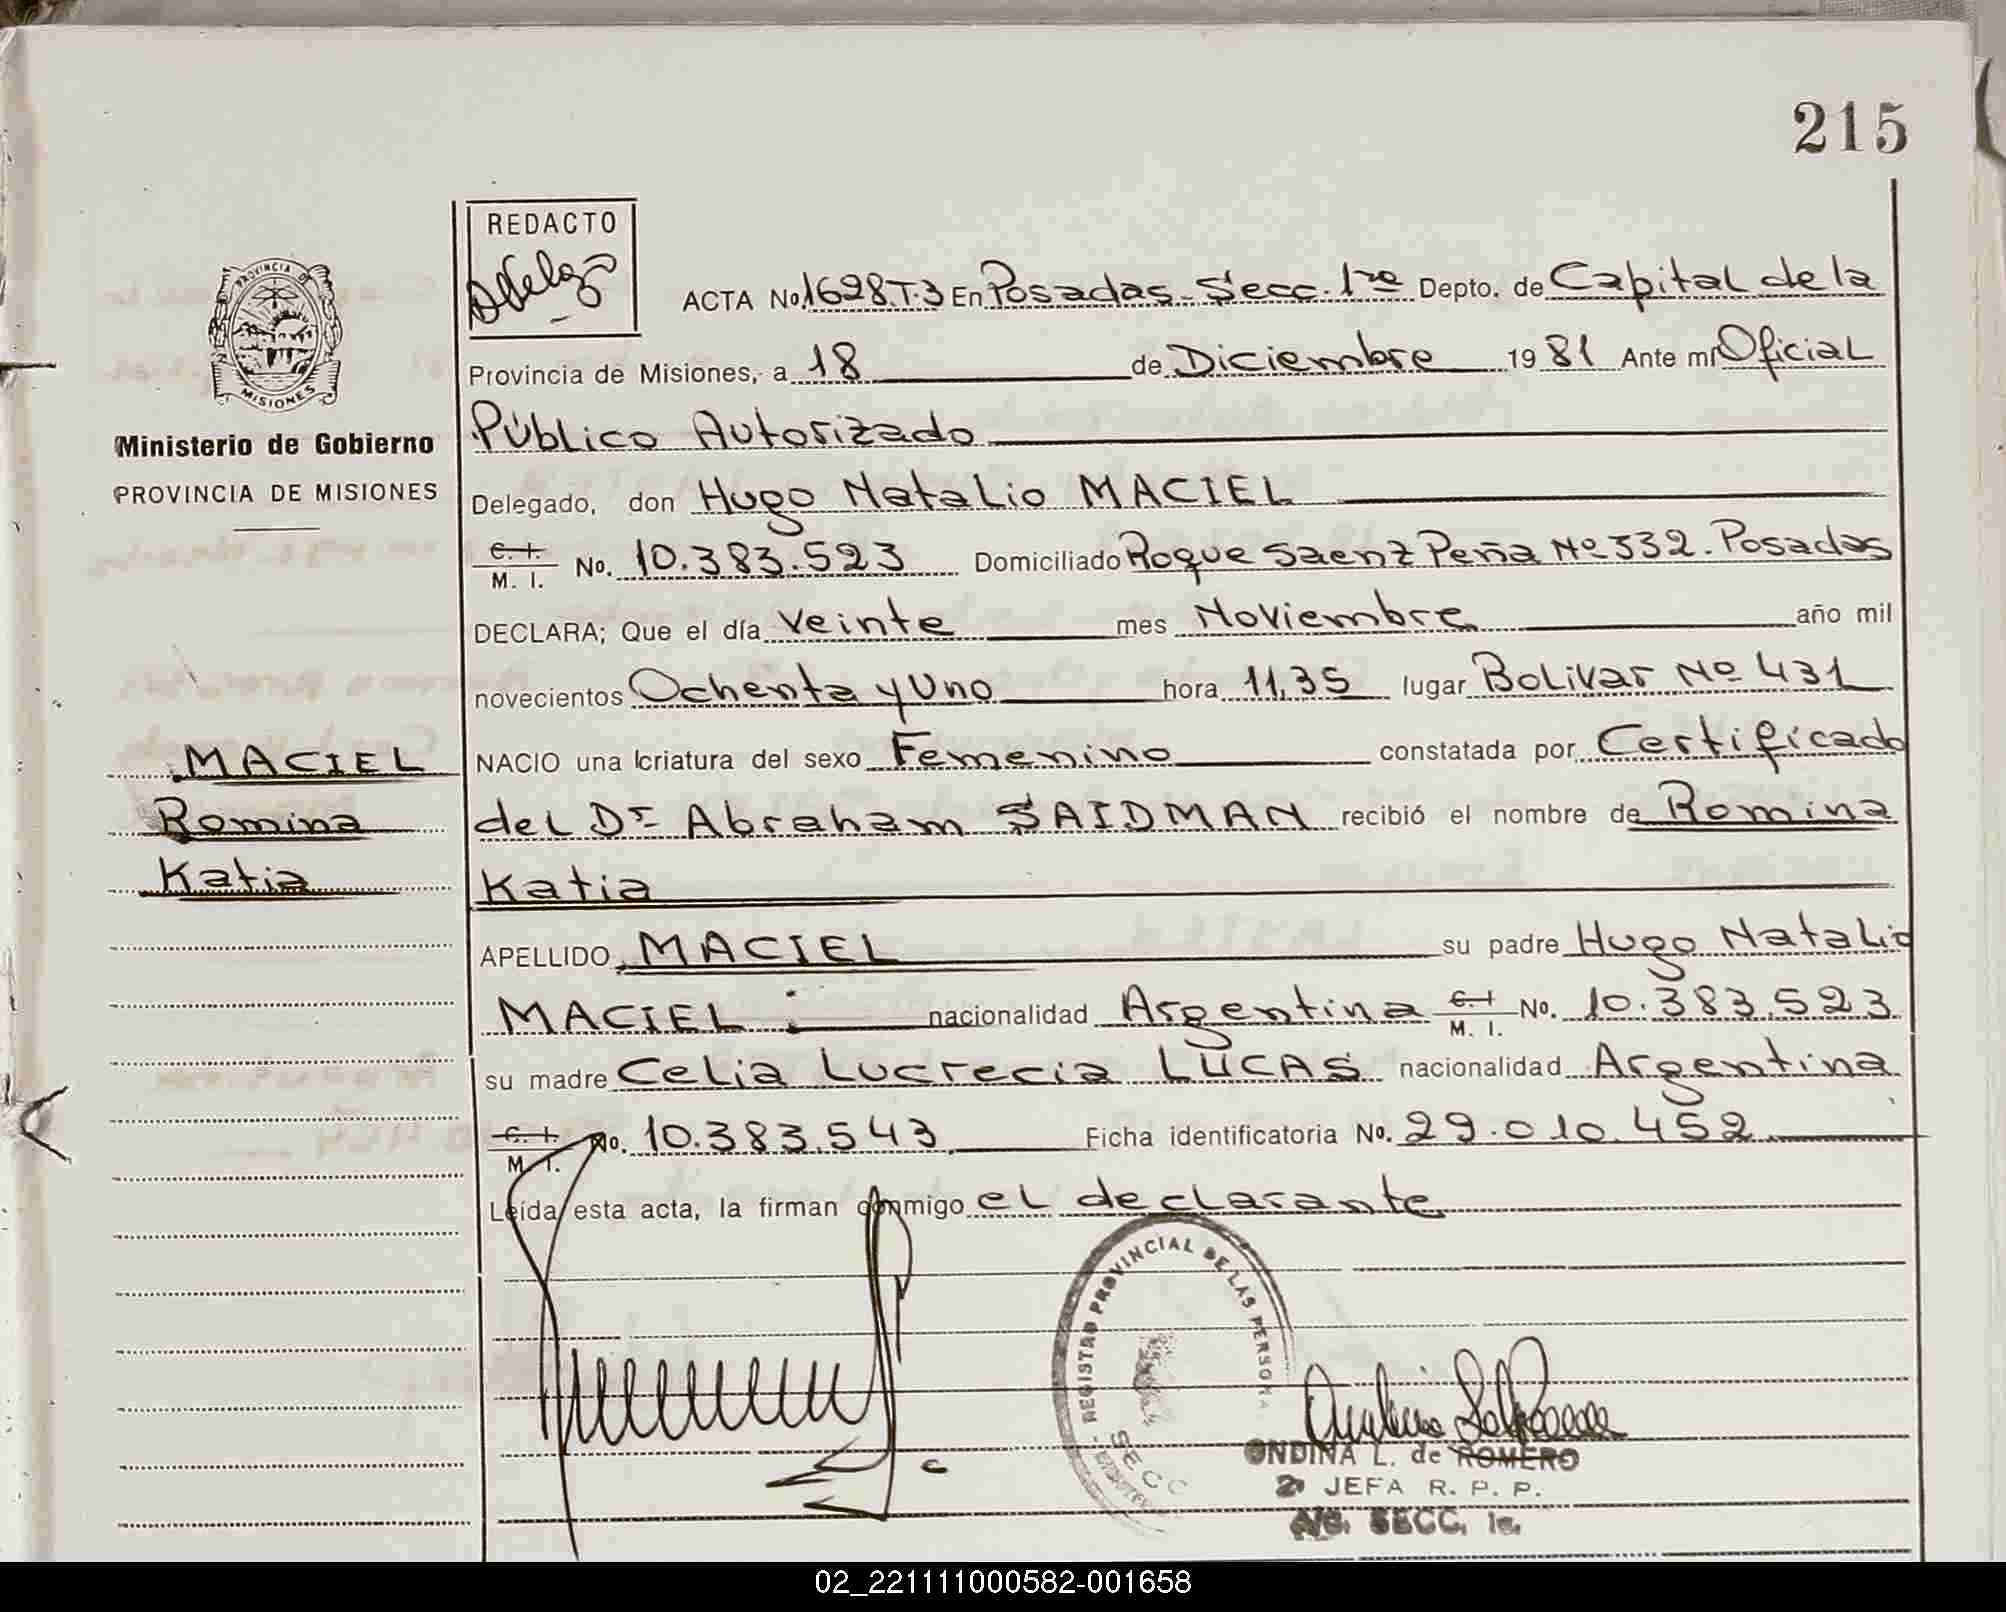 215
REDACTO
PROVINCIA DE
MISIONES
ACTA No 1698.T.3 En Posadas - Secc. 1ra Depto. de Capital de la
Provincia de Misiones, a 18 de Diciembre 1981 Ante mi Oficial
Público Autorizado
Ministerio de Gobierno
PROVINCIA DE MISIONES
Delegado, don Hugo Natalio MACIEL
C. I. M. I. No. 10.383.523 Domiciliado Roque Saenz Peña Nº 332. Posadas
DECLARA; Que el día veinte mes Noviembre año mil
novecientos Ochenta y Uno hora 11,35 lugar Bolivar Nº 431
MACIEL
Romina
Katia
NACIO una criatura del sexo Femenino constatada por Certificado
del Dr Abraham SAIDMAN recibió el nombre de Romina
Katia
APELLIDO MACIEL su padre Hugo Natalio
MACIEL nacionalidad Argentina C. I M. I. No. 10.383.523
su madre Celia Lucrecia LUCAS nacionalidad Argentina
C. I. M. I. No. 10.383.543 Ficha identificatoria No. 29.010.452
Leída esta acta, la firman conmigo el declarante
REGISTRO PROVINCIAL DE LAS PERSONA
SECC
ONDINA L. de ROMERO
2ª JEFA R. P. P.
A/C. SECC. 1a.
02_221111000582-001658